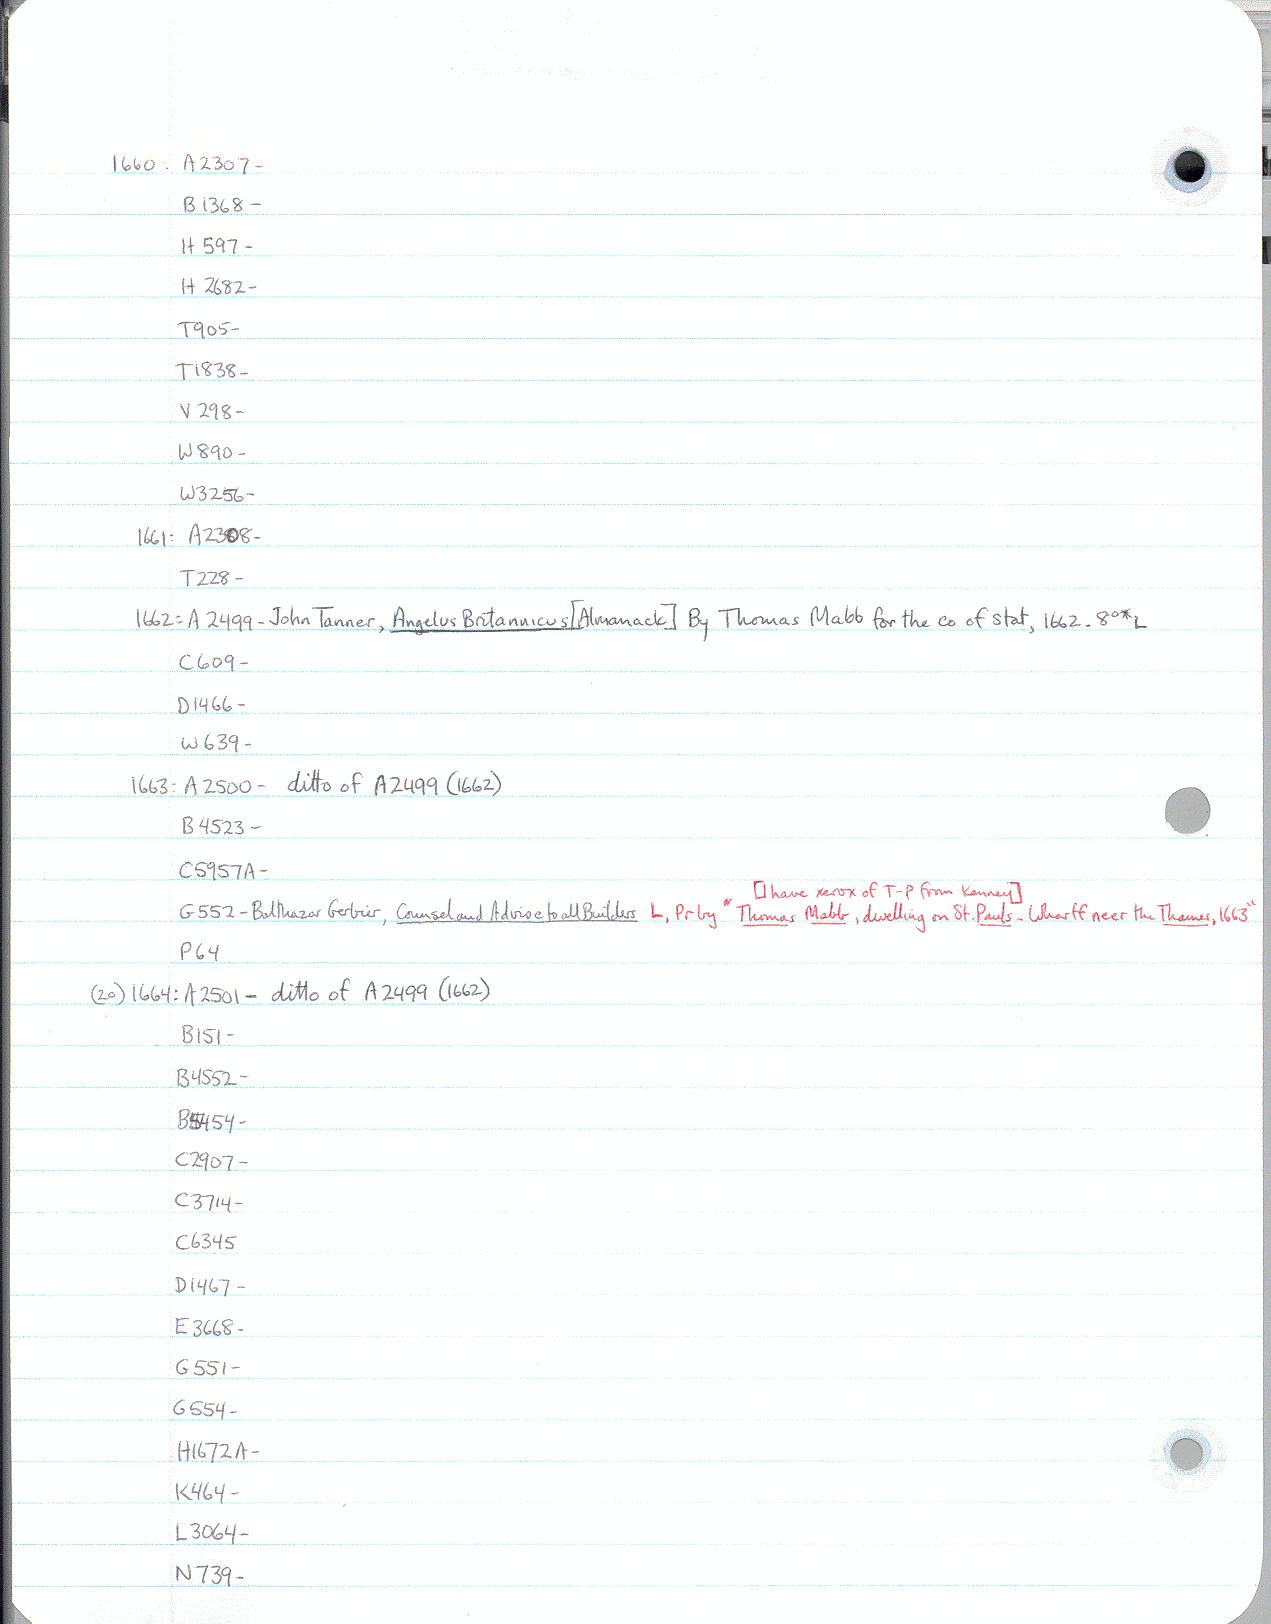 1660: A2307-
B1368-
H597-
H2682-
T905-
T1838-
V298-
W890-
W3256-
1661: A2308-
T228-
1662: A2499-John Tanner, Angelus Britannicus [Almanack] By Thomas Mabb for the co of stat, 1662-8º*L
C609-
D1466-
W639-
1663: A2500- ditto of A2499 (1662)
B4523-
C5957A-
[I have xerox of T-P from Kenney]
G552-Balthazar Gerbier, Counsel and Advise to all Builders L, Pr by "Thomas Mabb, dwelling on St. Pauls-Wharff neer the Thames, 1663"
P64
(20) 1664: A2501- ditto of A2499 (1662)
B151-
B4552-
B5454-
C2907-
C3714-
C6345
D1467-
E3668-
G551-
G554-
H1672A-
K464-
L3064-
N739-